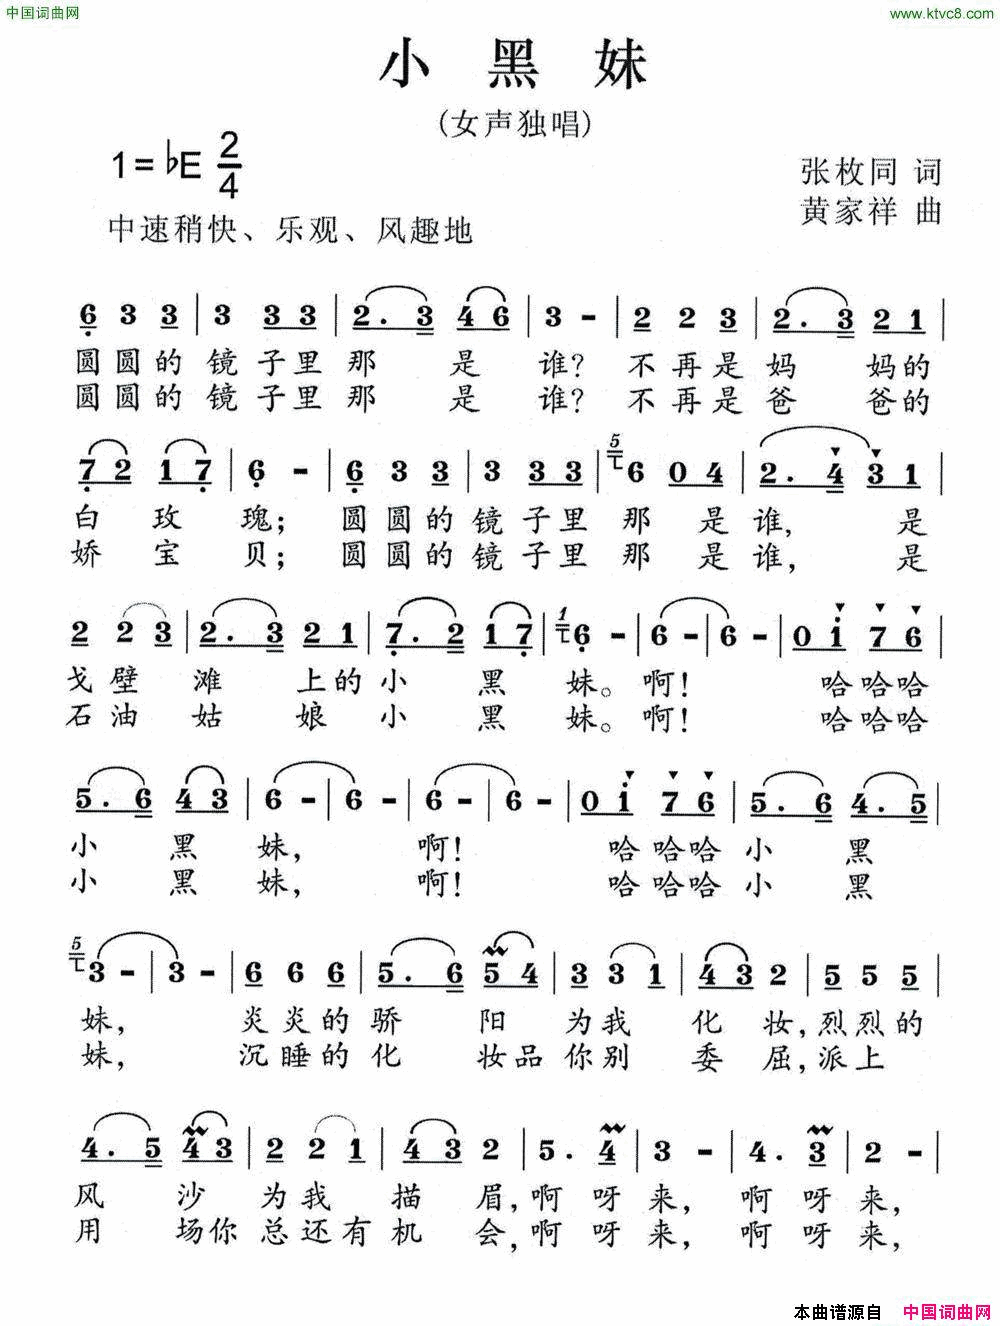 中国词曲网
www.ktvc8.com
小黑妹
(女声独唱)
1=♭E 2/4
张枚同 词
黄家祥 曲
中速稍快、乐观、风趣地
6 3 3 | 3 3 3 | 2. 3 4 6 | 3 - | 2 2 3 | 2. 3 2 1 |
圆圆的镜子里那是谁?不再是妈妈的
圆圆的镜子里那是谁?不再是爸爸的
7 2 1 7 | 6 - | 6 3 3 | 3 3 3 | 5 6 0 4 | 2. 4 3 1 |
白玫瑰;圆圆的镜子里那是谁,是
娇宝贝;圆圆的镜子里那是谁,是
2 2 3 | 2. 3 2 1 | 7. 2 1 7 | 1 6 - | 6 - | 6 - | 0 i 7 6 |
戈壁滩上的小黑妹。啊!哈哈哈
石油姑娘小黑妹。啊!哈哈哈
5. 6 4 3 | 6 - | 6 - | 6 - | 6 - | 0 i 7 6 | 5. 6 4. 5 |
小黑妹,啊!哈哈哈小黑
小黑妹,啊!哈哈哈小黑
5 3 - | 3 - | 6 6 6 | 5. 6 5 4 | 3 3 1 | 4 3 2 | 5 5 5 |
妹,炎炎的骄阳为我化妆,烈烈的
妹,沉睡的化妆品你别委屈,派上
4. 5 4 3 | 2 2 1 | 4 3 2 | 5. 4 | 3 - | 4. 3 | 2 - |
风沙为我描眉,啊呀来,啊呀来,
用场你总还有机会,啊呀来,啊呀来,
本曲谱源自 中国词曲网